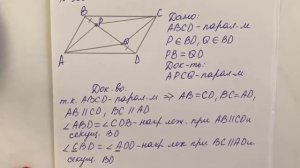 B
C
P
Q
A
D
Дано:
ABCD-парал.м
P∈BD, Q∈BD
PB=QD
Док-ть:
APCQ-парал-м
Док-во.
т.к. ABCD-парал-м ⇒ AB=CD, BC=AD,
AB||CD, BC||AD
∠ABD=∠CDB-накр леж. при AB||CD и
секущ. BD
∠CBD=∠ADD-накр леж при BC||AD и
секущ. BD